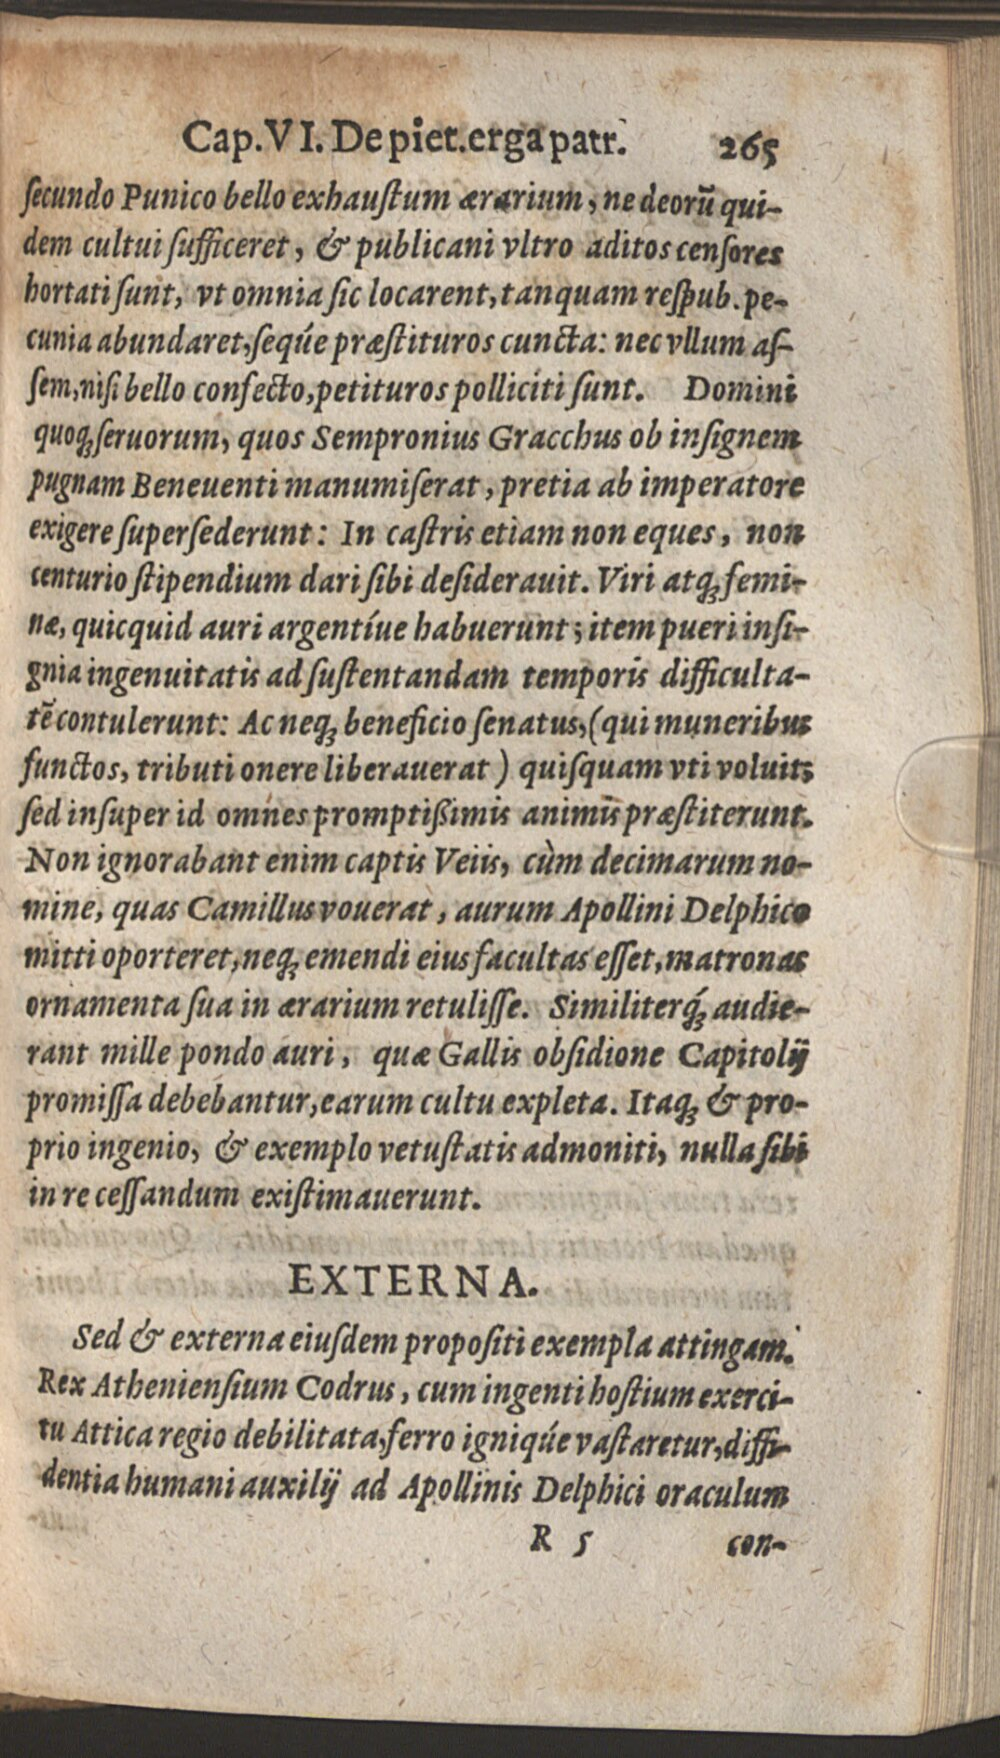 Cap. VI. De piet. erga patr. 265
ſecundo Punico bello exhauſtum ærarium, ne deorũ qui-
dem cultui ſufficeret, & publicani vltro aditos cenſores
hortati ſunt, vt omnia ſic locarent, tanquam reſpub. pe-
cunia abundaret, ſeq́ue præſtituros cuncta: nec vllum aſ-
ſem, niſi bello confecto, petituros polliciti ſunt. Domini
quoqꝫ ſeruorum, quos Sempronius Gracchus ob inſignem
pugnam Beneuenti manumiſerat, pretia ab imperatore
exigere ſuperſederunt: In caſtris etiam non eques, non
centurio ſtipendium dari ſibi deſiderauit. Viri atqꝫ femi-
næ, quicquid auri argentíue habuerunt; item pueri inſi-
gnia ingenuitatis ad ſuſtentandam temporis difficulta-
tẽ contulerunt: Ac neqꝫ beneficio ſenatus, (qui muneribus
functos, tributi onere liberauerat) quiſquam vti voluit;
ſed inſuper id omnes promptißimis animis præſtiterunt.
Non ignorabant enim captis Veiis, cùm decimarum no-
mine, quas Camillus vouerat, aurum Apollini Delphico
mitti oporteret, neqꝫ emendi eius facultas eſſet, matronas
ornamenta ſua in ærarium retuliſſe. Similiterq́ꝫ audie-
rant mille pondo auri, quæ Gallis obſidione Capitolij
promiſſa debebantur, earum cultu expleta. Itaqꝫ & pro-
prio ingenio, & exemplo vetuſtatis admoniti, nulla ſibi
in re ceſſandum exiſtimauerunt.
EXTERNA.
Sed & externa eiuſdem propoſiti exempla attingam.
Rex Athenienſium Codrus, cum ingenti hoſtium exerci-
tu Attica regio debilitata, ferro igniq́ue vaſtaretur, diffi-
dentia humani auxilij ad Apollinis Delphici oraculum
R 5 con-